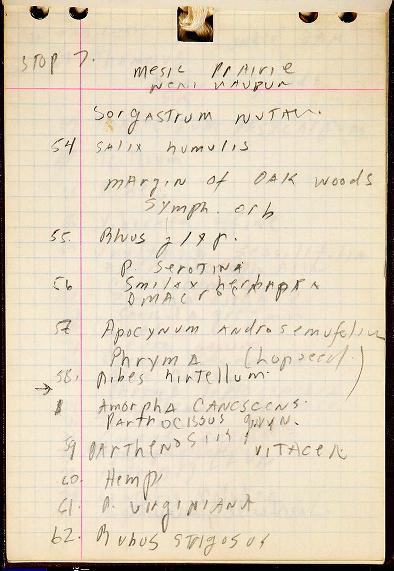 STOP 7.
mesic PrAirie
Sorgastrum NUTAN.
54 SAlix humulis
mArgin of OAK woods
Symph. orb
55. Rhus glap.
P. SerOTINA
56 Smilax herbAceA
57 Apocynum Androsemifolium
PhrymA (hopseed.)
58. Ribes hirtellum.
Amorpha CANESCENS.
Parthocissus
59 PArThenosiss VITACEA
60. Hemp
61. P. VIRGINIANA
62. Rubus STRIgosus